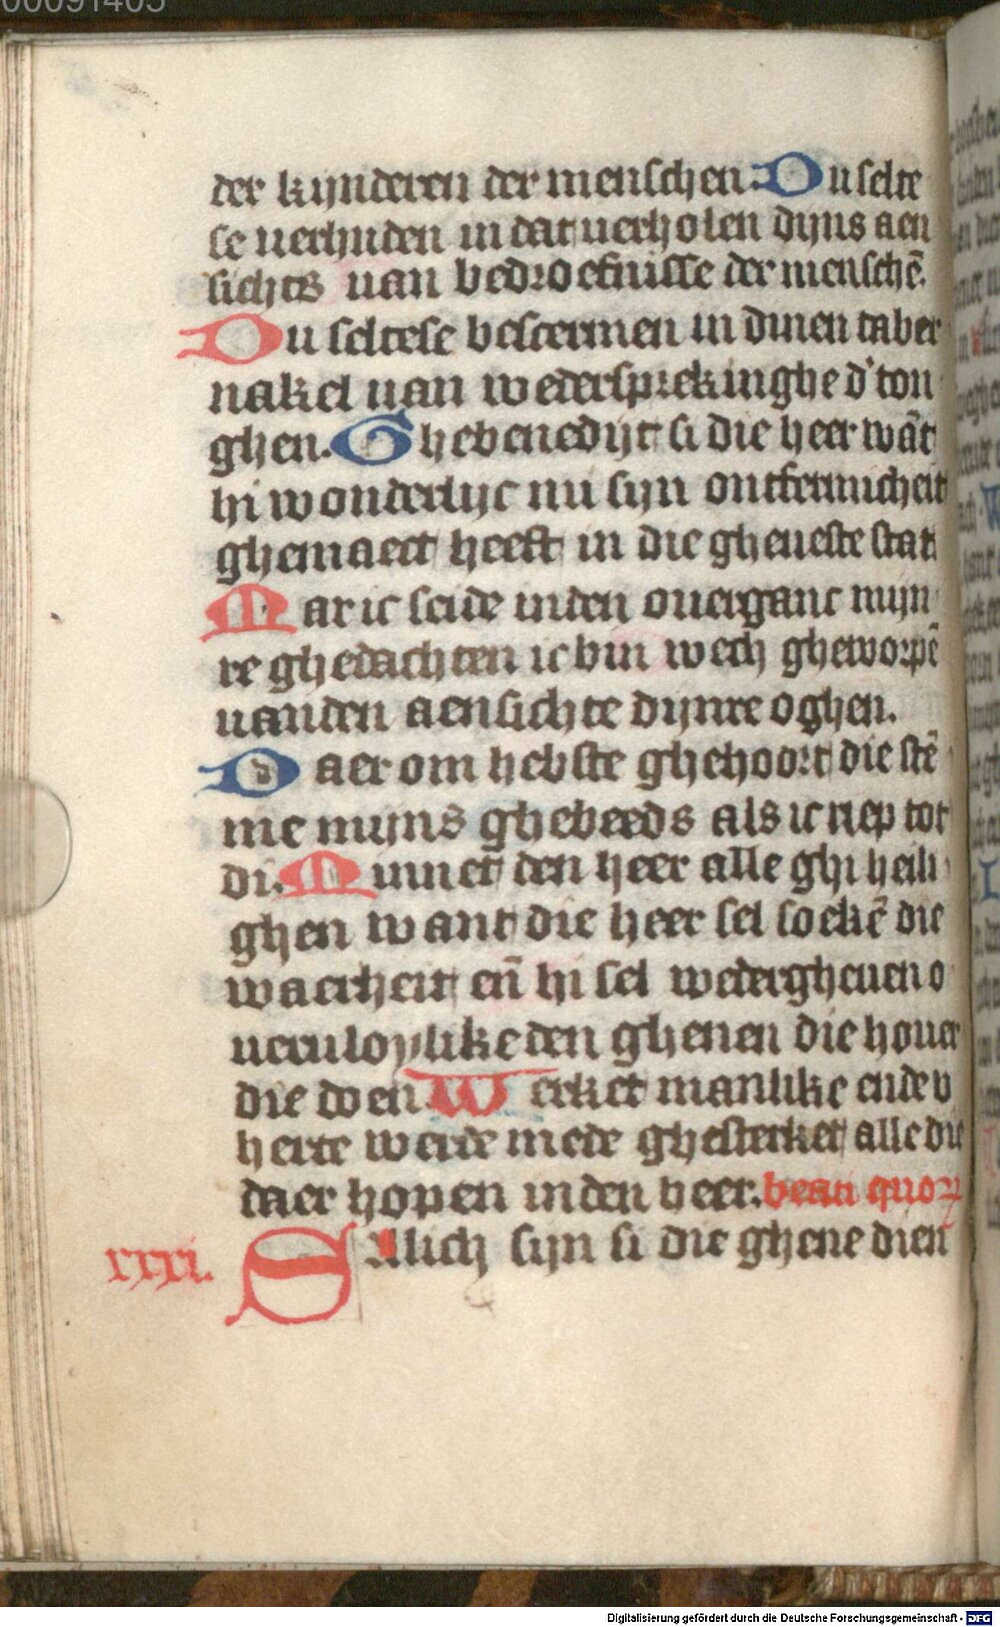 00091405
der kijnderen der menschen. Du selte
se uerhuden in dat uerholen dijns aen
sichts uan bedroefnisse der menschē.
Du seltese bescermen in dinen taber
nakel uan wedersprekinghe d' ton
ghen. Ghebenedijt si die heer wāt
hi wonderlijc nu sijn ontfermicheit
ghemaect heeft in die gheueste stat
Mar ic seide inden ouerganc mijn
re ghedachten ic bin wech gheworpē
uanden aensichte dijnre oghen.
Daer om hebste ghehoort die stē
me mijns ghebeeds als ic riep tot
di. Minnet den heer alle ghi heili
ghen want die heer sel soekē die
waerheit eñ hi sel wedergheuen o
ueruloylike den ghenen die houer
die doen Werket manlike ende v
herte werde mede ghesterket alle die
daer hopen inden heer. beati quoꝝ
xxxi. Salich sijn si die ghene dien
Digitalisierung gefördert durch die Deutsche Forschungsgemeinschaft - DFG